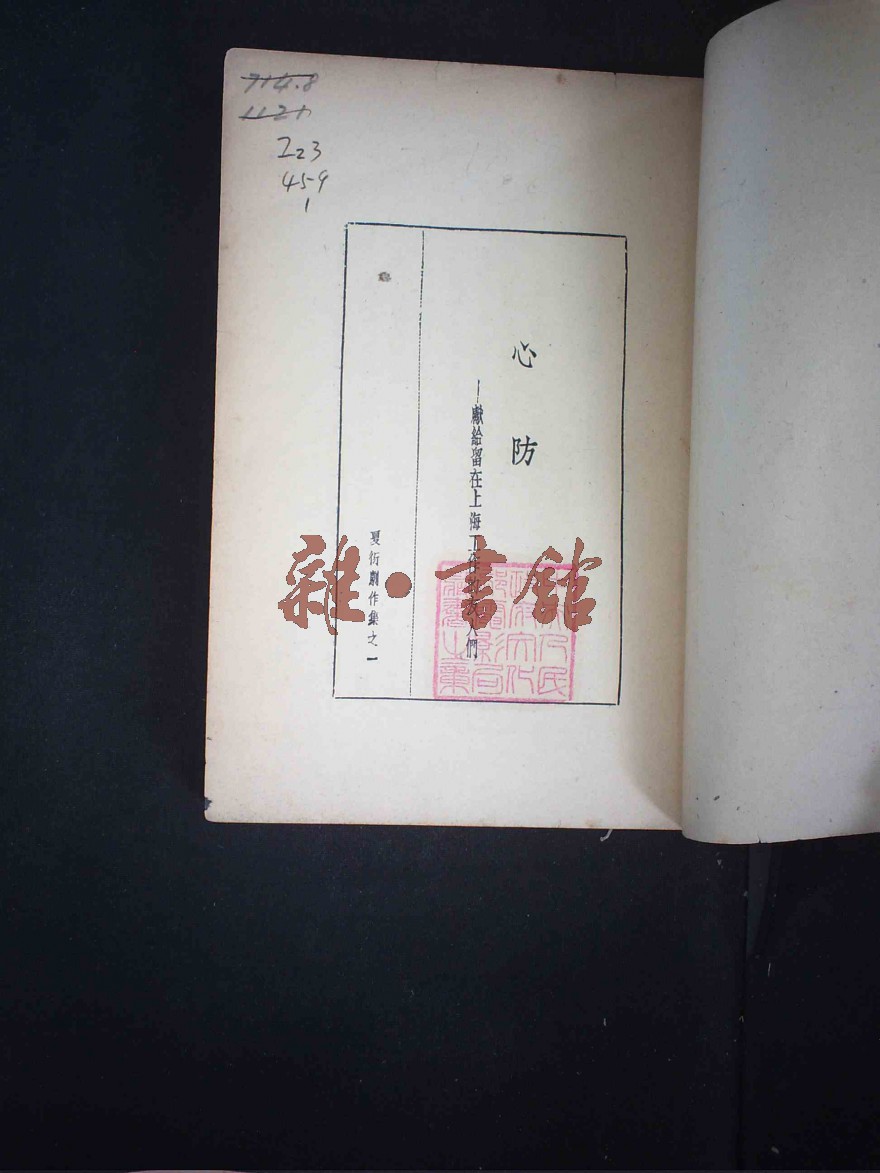 714.8
1121
I23
459
1
心防
——獻給留在上海工作的友人們
夏衍劇作集之一
雜·書館